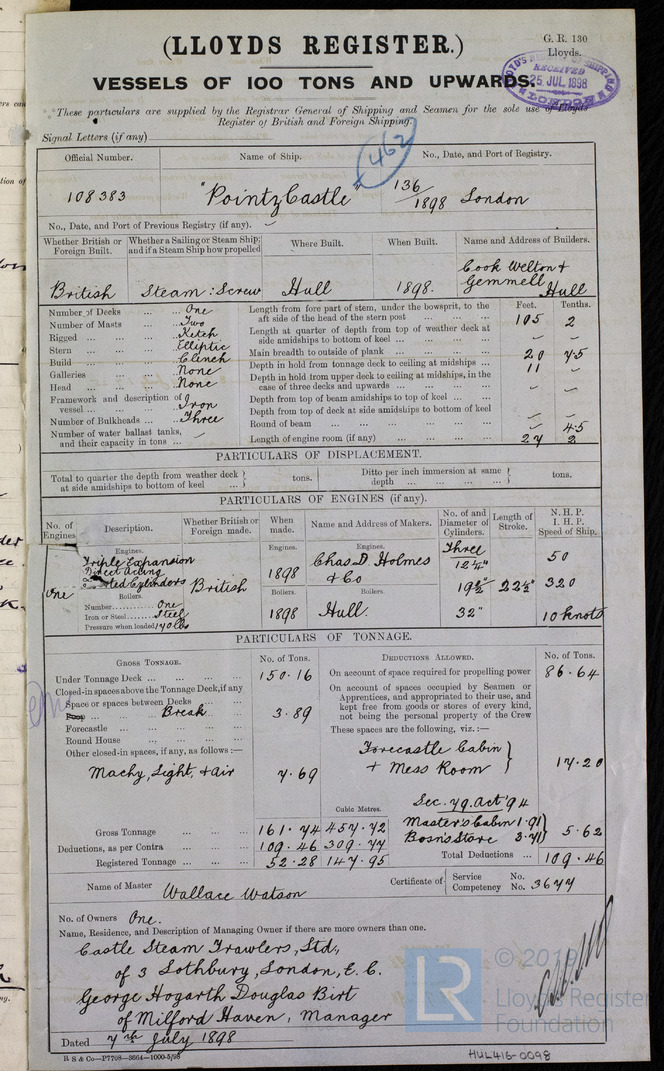 (LLOYDS REGISTER.)
G. R. 130
Lloyds.
VESSELS OF 100 TONS AND UPWARDS.
LLOYD'S REGISTER OF SHIPPING
RECEIVED
25 JUL 1898
LONDON
These particulars are supplied by the Registrar General of Shipping and Seamen for the sole use of Lloyds
Register of British and Foreign Shipping.
Signal Letters (if any)
462
Official Number. Name of Ship. No., Date, and Port of Registry.
108383 "Pointz Castle" 136/1898 London
No., Date, and Port of Previous Registry (if any).
Whether British or Foreign Built. Whether a Sailing or Steam Ship; and if a Steam Ship how propelled Where Built. When Built. Name and Address of Builders.
British Steam : Screw Hull 1898. Cook Welton & Gemmell Hull
Feet. Tenths.
Number of Decks ... ... One
Number of Masts ... ... Two
Rigged ... ... ... Ketch
Stern ... ... ... Elliptic
Build ... ... ... Clench
Galleries ... ... None
Head ... ... ... None
Framework and description of vessel ... ... ... Iron
Number of Bulkheads ... ... Three
Number of water ballast tanks, and their capacity in tons ... –
Length from fore part of stem, under the bowsprit, to the aft side of the head of the stern post 105 2
Length at quarter of depth from top of weather deck at side amidships to bottom of keel – –
Main breadth to outside of plank 20 75
Depth in hold from tonnage deck to ceiling at midships 11 –
Depth in hold from upper deck to ceiling at midships, in the case of three decks and upwards – –
Depth from top of beam amidships to top of keel
Depth from top of deck at side amidships to bottom of keel – –
Round of beam – 45
Length of engine room (if any) 27 2
PARTICULARS OF DISPLACEMENT.
Total to quarter the depth from weather deck at side amidships to bottom of keel ... tons. Ditto per inch immersion at same depth ... tons.
PARTICULARS OF ENGINES (if any).
No. of Engines. Description. Whether British or Foreign made. When made. Name and Address of Makers. No. of and Diameter of Cylinders. Length of Stroke. N. H. P. I. H. P. Speed of Ship.
One
Engines.
Triple Expansion
Direct Acting
Cylinders
British
Engines. 1898
Engines. Chas. D. Holmes & Co
Three
12½"
19½"
32"
22½"
50
320
10 knots
Boilers.
Number One
Iron or Steel Steel
Pressure when loaded 170 lbs
Boilers. 1898
Boilers. Hull.
PARTICULARS OF TONNAGE.
GROSS TONNAGE. No. of Tons.
Under Tonnage Deck ... ... ... 150.16
Closed-in spaces above the Tonnage Deck, if any
Space or spaces between Decks
Break 3.89
Forecastle
Round House
Other closed-in spaces, if any, as follows :—
Machy, Light, & air 7.69
Cubic Metres.
Gross Tonnage 161.74 457.72
Deductions, as per Contra 109.46 309.77
Registered Tonnage 52.28 147.95
DEDUCTIONS ALLOWED. No. of Tons.
On account of space required for propelling power 86.64
On account of spaces occupied by Seamen or Apprentices, and appropriated to their use, and kept free from goods or stores of every kind, not being the personal property of the Crew
These spaces are the following, viz. :—
Forecastle Cabin
+ Mess Room 17.20
Sec. 79. Act '94
Master's Cabin 1.91
Bosn's Store 3.71 5.62
Total Deductions ... 109.46
Name of Master Wallace Watson
Certificate of Service No.
Competency No. 3677
No. of Owners One.
Name, Residence, and Description of Managing Owner if there are more owners than one.
Castle Steam Trawlers, Ltd,
of 3 Lothbury, London, E. C.
George Hogarth Douglas Birt
of Milford Haven, Manager
Dated 7th July 1898
R S & Co—P7708—3664—1000-5/98
LR
© 2019
Lloyd's Register
Foundation
HUL416-0098